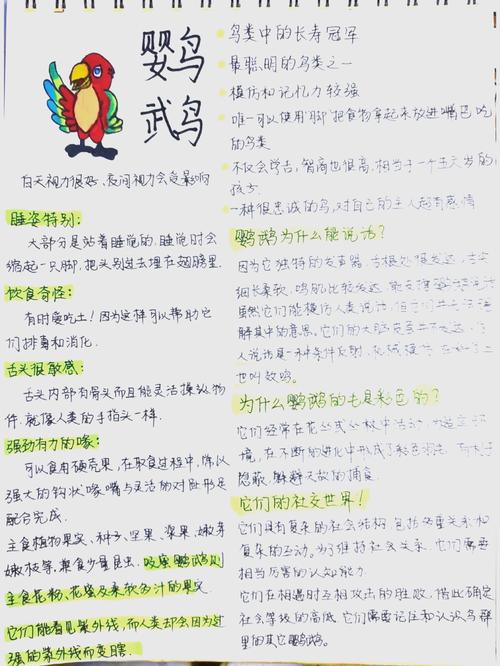 鹦鹉
白天视力很好,夜间视力会受影响
睡姿特别:
大部分是站着睡觉的,睡觉时会
缩起一只脚,把头别过去埋在翅膀里.
饮食奇怪:
有时爱吃土!因为这样可以帮助它
们排毒和消化.
舌头很敏感:
舌头内部有骨头而且能灵活操纵物
件,就像人类的手指头一样.
强劲有力的喙:
可以食用硬壳果,在取食过程中,常以
强大的钩状喙嘴与灵活的对趾形足
配合完成.
主食植物果实、种子、坚果、浆果、嫩芽
嫩枝等,兼食少量昆虫.吸蜜鹦鹉则
主食花粉、花蜜及柔软多汁的果实.
它们能看见紫外线,而人类却会因为过
强的紫外线而变瞎.
鸟类中的长寿冠军
最聪明的鸟类之一
模仿和记忆力较强
唯一可以使用"脚"把食物拿起来放进嘴巴吃
的鸟类
不仅会学舌,智商也很高,相当于一个五六岁的
孩子.
一种很忠诚的鸟,对自己的主人超有感情
鹦鹉为什么能说话?
因为它独特的发声器,舌根处很发达,舌尖
细长柔软,鸣肌比较发达,能支撑鹦鹉说话
虽然它们能模仿人类说话,但它们并无法理
解其中的意思.它们的大脑皮层不发达,
人说话是一种条件反射,机械模仿,在
也叫效鸣.
为什么鹦鹉的毛是彩色的?
它们经常在花丛或丛林中活动,为适应环
境,在不断的进化中形成了彩色羽毛,有利于
隐蔽,躲避天敌的捕食.
它们的社交世界!
它们具有复杂的社会结构,包括多重关系和
复杂的互动.为了维持社会关系,它们需要
相当厉害的认知能力.
它们在相遇时互相攻击的胜败,借此确定
社会等级的高低,它们需要记住和认识鸟群
里的其它鹦鹉.